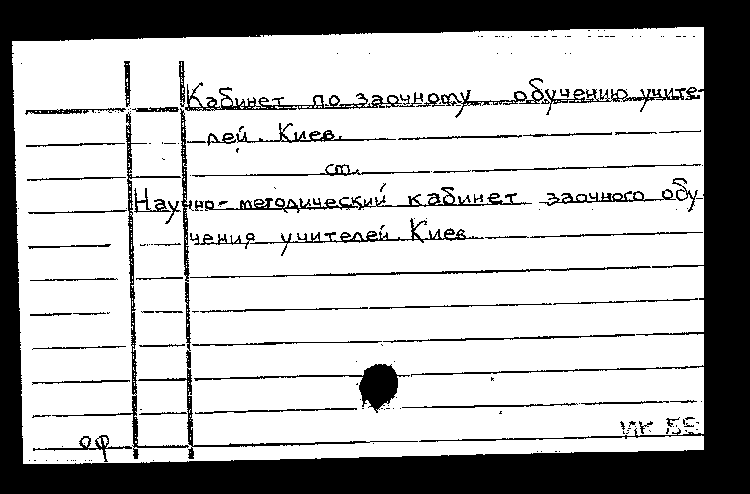 Кабинет по заочному обучению учите-
лей. Киев.
см.
Научно-методический кабинет заочного обу
чения учителей. Киев.
ИК БЕ
оф